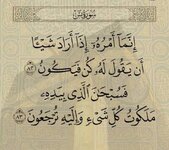 سورة يس
إِنَّمَا أَمْرُهُ إِذَا أَرَادَ شَيْئًا
أَن يَقُولَ لَهُ كُن فَيَكُونُ ٨٢
فَسُبْحَٰنَ ٱلَّذِى بِيَدِهِ
مَلَكُوتُ كُلِّ شَىْءٍ وَإِلَيْهِ تُرْجَعُونَ ٨٣